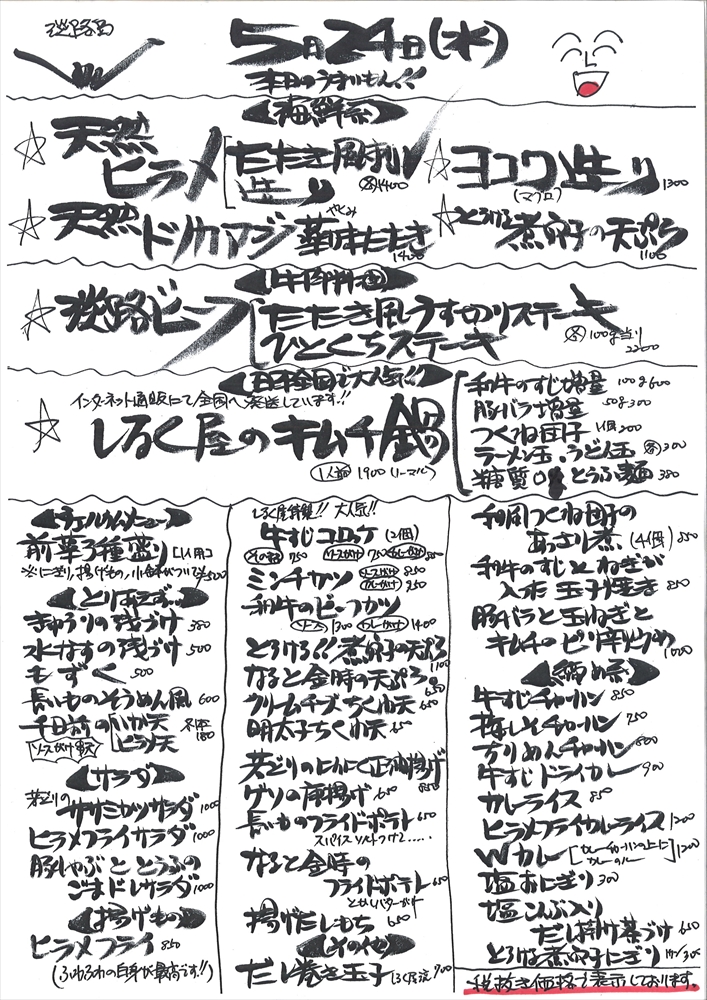 淡路島
5月24日(水)
本日のうまいもん!!
海鮮系
☆天然ヒラメ
たたき風造り
造り
各1400
☆ヨコワ造り
(マグロ)
1300
☆天然
薬味たたき
1400
☆とろける煮穴子の天ぷら
1100
牛肉料理
☆淡路ビーフ
たたき風うす切りステーキ
ひとくちステーキ
各100g当り
2200
日本全国で大人気!!
インターネット通販にて全国へ発送しています!!
☆しるく屋のキムチ鍋
1人前 1900(ノーマル)
和牛のすじ増量 100g 600
豚バラ増量 50g 300
つくね団子 1個 200
ラーメン玉・うどん玉 各300
糖質0 とうふ麺 380
ウェルカムメニュー
前菜3種盛り
1500
とりあえず…
きゅうりの浅づけ 380
水なすの浅づけ 500
もずく 500
長いものそうめん風 600
千日前のいか天
ヒラメ天
各1本 180
ソースがけ串天
サラダ
若どりの
ササミカツサラダ 1000
ヒラメフライサラダ 1000
豚しゃぶととうふの
ごまドレサラダ 1000
揚げもの
ヒラメフライ 850
(ふわふわの白身が最高です!!)
しるく屋特製!! 大人気!!
牛すじコロッケ(2個)
そのまま 750 ソースがけ 750 カレーがけ 850
ミンチカツ
ソースがけ 850
カレーがけ 950
和牛のビーフカツ
ソース 1300 カレーがけ 1400
とろける!!煮穴子の天ぷら 1100
なると金時の天ぷら 650
クリームチーズちくわ天 650
明太子ちくわ天 650
若どりのにんにく正油揚げ 850
ゲソの唐揚げ 650
長いものフライドポテト 650
スパイスソルトつけて.....
なると金時の
フライドポテト 650
とかしバターがけ
揚げだしもち 650
その他
だし巻き玉子 しるく屋流 700
和風つくね団子の
あっさり煮(4個) 850
和牛のすじとねぎが
入った玉子焼き 850
豚バラと玉ねぎと
キムチのピリ辛炒め 1000
〆め系
牛すじチャーハン 850
梅しそチャーハン 750
ちりめんチャーハン 800
牛すじドライカレー 900
カレーライス 850
ヒラメフライカレーライス 1200
Wカレー
カレーチャーハンの上に
カレールー
1200
塩おにぎり 300
塩こんぶ入り
だし掛け茶づけ 650
とろける煮穴子にぎり 1カン 300
税抜き価格で表示しております。